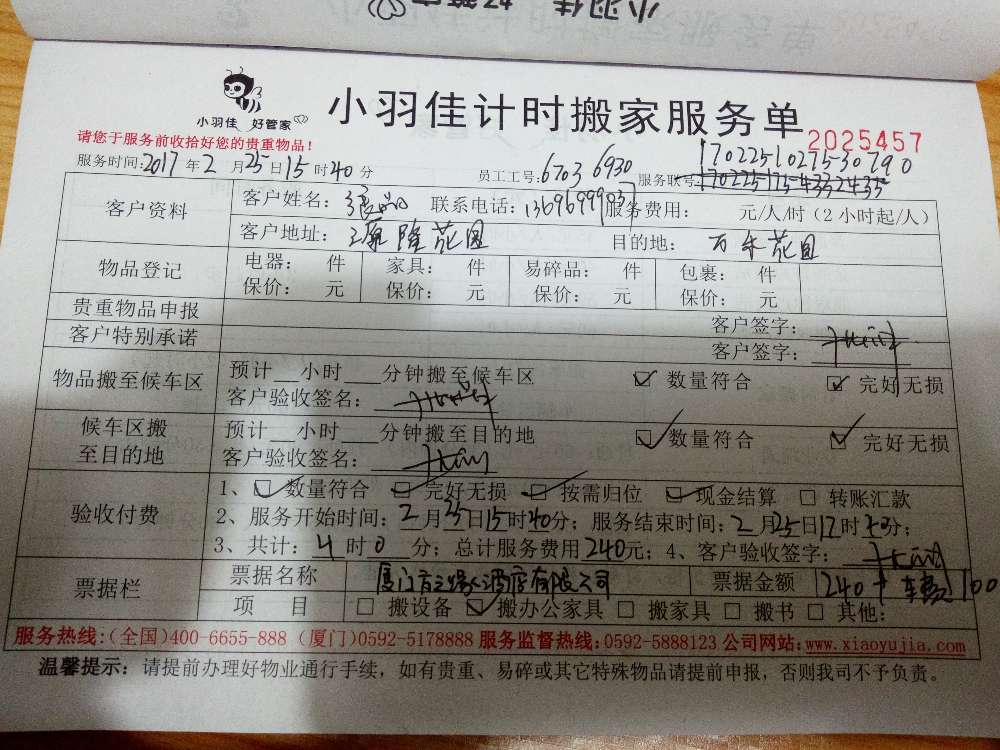 小羽佳 好管家
小羽佳计时搬家服务单
2025457
请您于服务前收拾好您的贵重物品！
服务时间:2017年2月25日15时40分 员工工号:6703 6930 服务联号: 1702251027530790
客户资料 客户姓名: 联系电话:13696999037 服务费用: 元/人/时（2小时起/人）
客户地址: 隆花园 目的地: 花园
物品登记 电器: 件 家具: 件 易碎品: 件 包裹: 件
保价: 元 保价: 元 保价: 元 保价: 元
贵重物品申报 客户签字:
客户特别承诺 客户签字:
物品搬至候车区 预计__小时___分钟搬至候车区 ☑ 数量符合 ☑ 完好无损
客户验收签名:
候车区搬至目的地 预计__小时___分钟搬至目的地 ☑ 数量符合 ☑ 完好无损
客户验收签名:
验收付费 1、☑ 数量符合 ☑ 完好无损 ☑ 按需归位 ☑ 现金结算 □ 转账汇款
2、服务开始时间:2月25日15时40分；服务结束时间:2月25日17时40分；
3、共计:4时0分；总计服务费用240元；4、客户验收签字:
票据栏 票据名称 酒店有限公司 票据金额 240+车费100
项 目 □ 搬设备 ☑ 搬办公家具 □ 搬家具 □ 搬书 □ 其他:
服务热线:(全国)400-6655-888 (厦门)0592-5178888 服务监督热线:0592-5888123 公司网站:www.xiaoyujia.com
温馨提示: 请提前办理好物业通行手续，如有贵重、易碎或其它特殊物品请提前申报，否则我司不予负责。